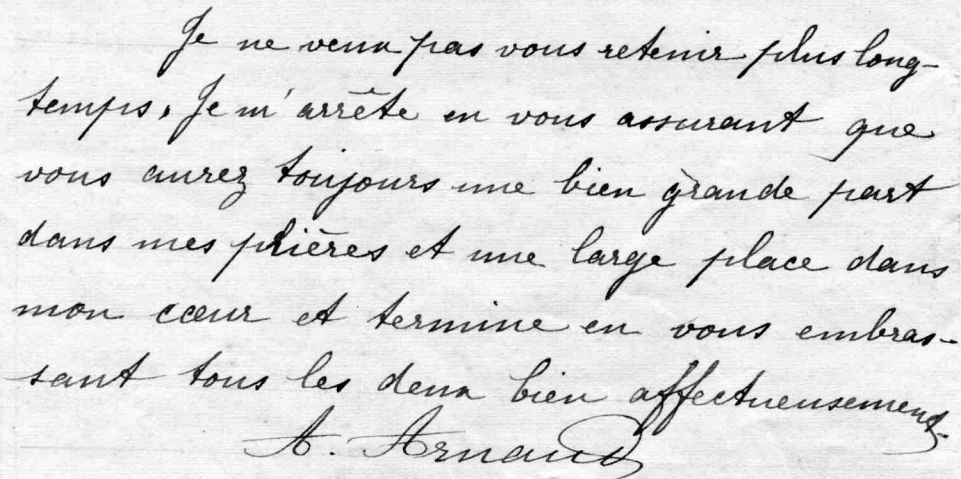 Je ne veux pas vous retenir plus long-
temps. Je m'arrête en vous assurant que
vous aurez toujours une bien grande part
dans mes prières et une large place dans
mon cœur et termine en vous embras-
sant tous les deux bien affectueusement
A. Arnaud